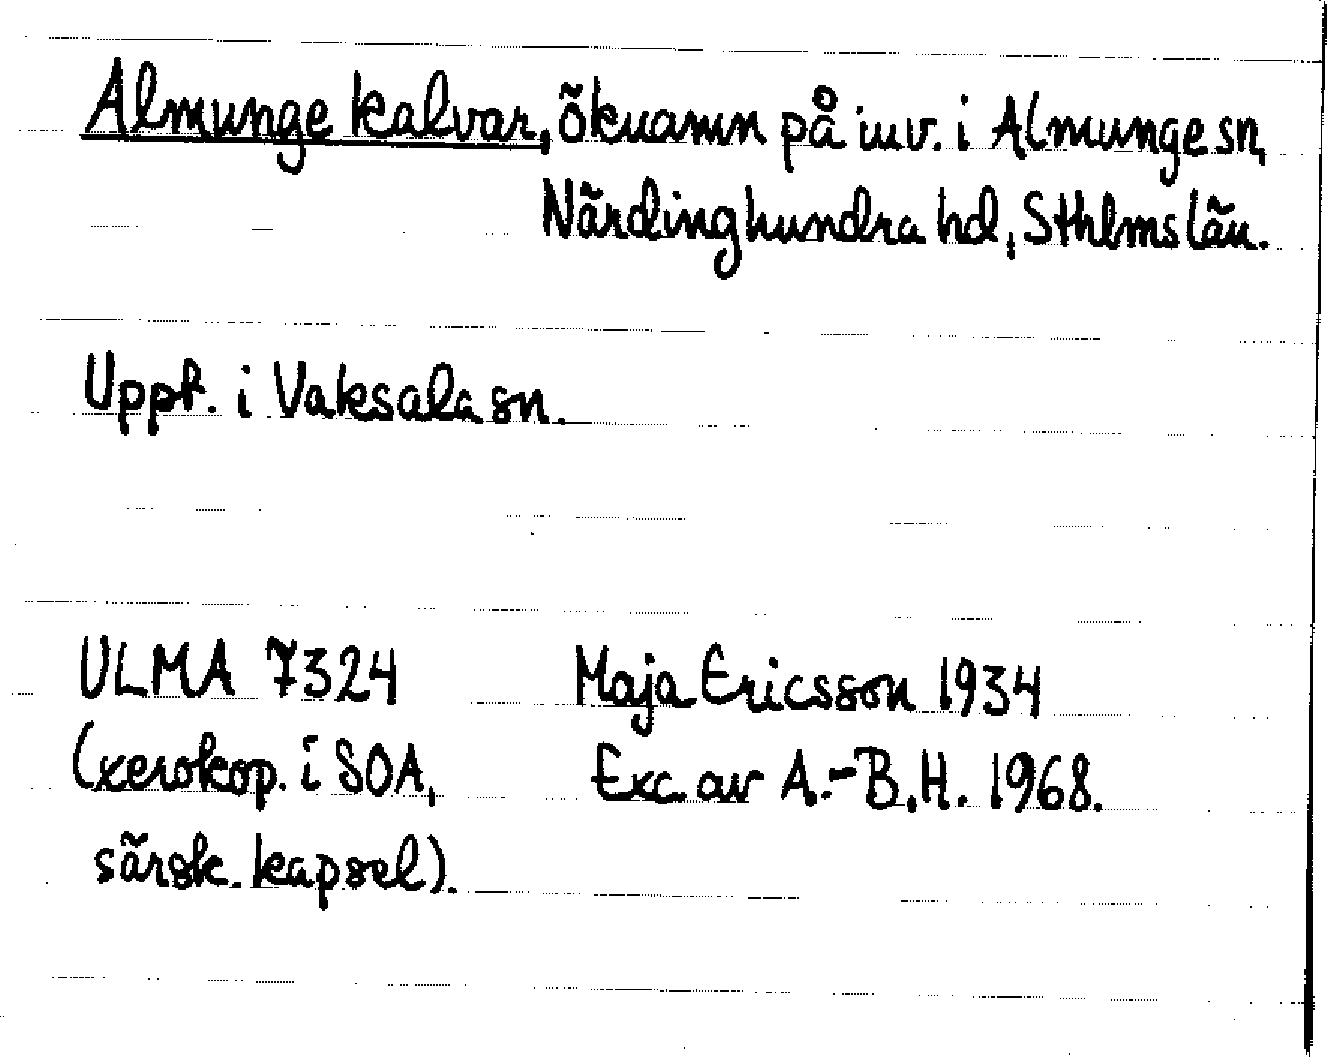 Almunge kalvar, öknamn på inv. i Almunge sn,
Närdinghundra hd, Sthlms län.
Uppt. i Vaksala sn.
ULMA 7324 Maja Ericsson 1934
(xerokop. i SOA, Exc. av A.-B.H. 1968.
särsk. kapsel).